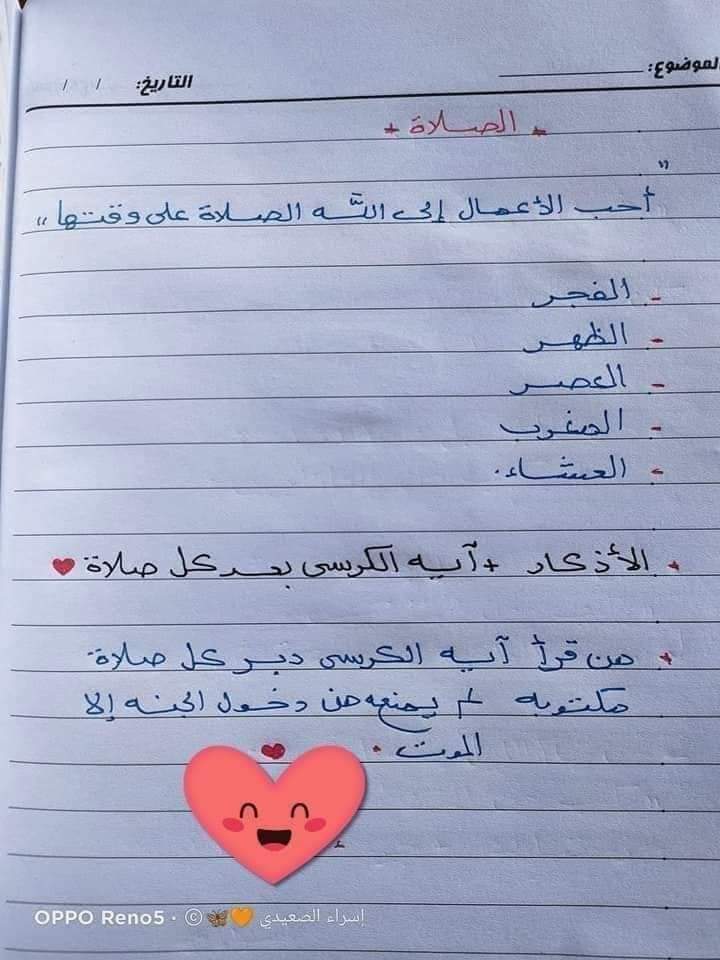 الموضوع: التاريخ: / /
* الصلاة *
"
أحب الأعمال إلى اللَّه الصلاة على وقتها "
- الفجر
- الظهر
- العصر
- المغرب
- العشاء.
* الأذكار + آيه الكرسى بعد كل صلاة ♥
* من قرأ آيه الكرسى دبر كل صلاة
مكتوبه لم يمنعه من دخول الجنه إلا
الموت . ♥
OPPO Reno5 · © 🦋🧡 إسراء الصعيدي